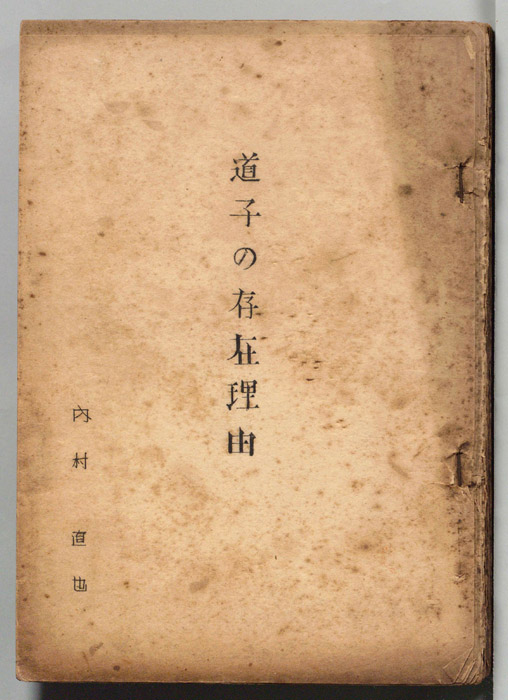 道子の存在理由
内村直也